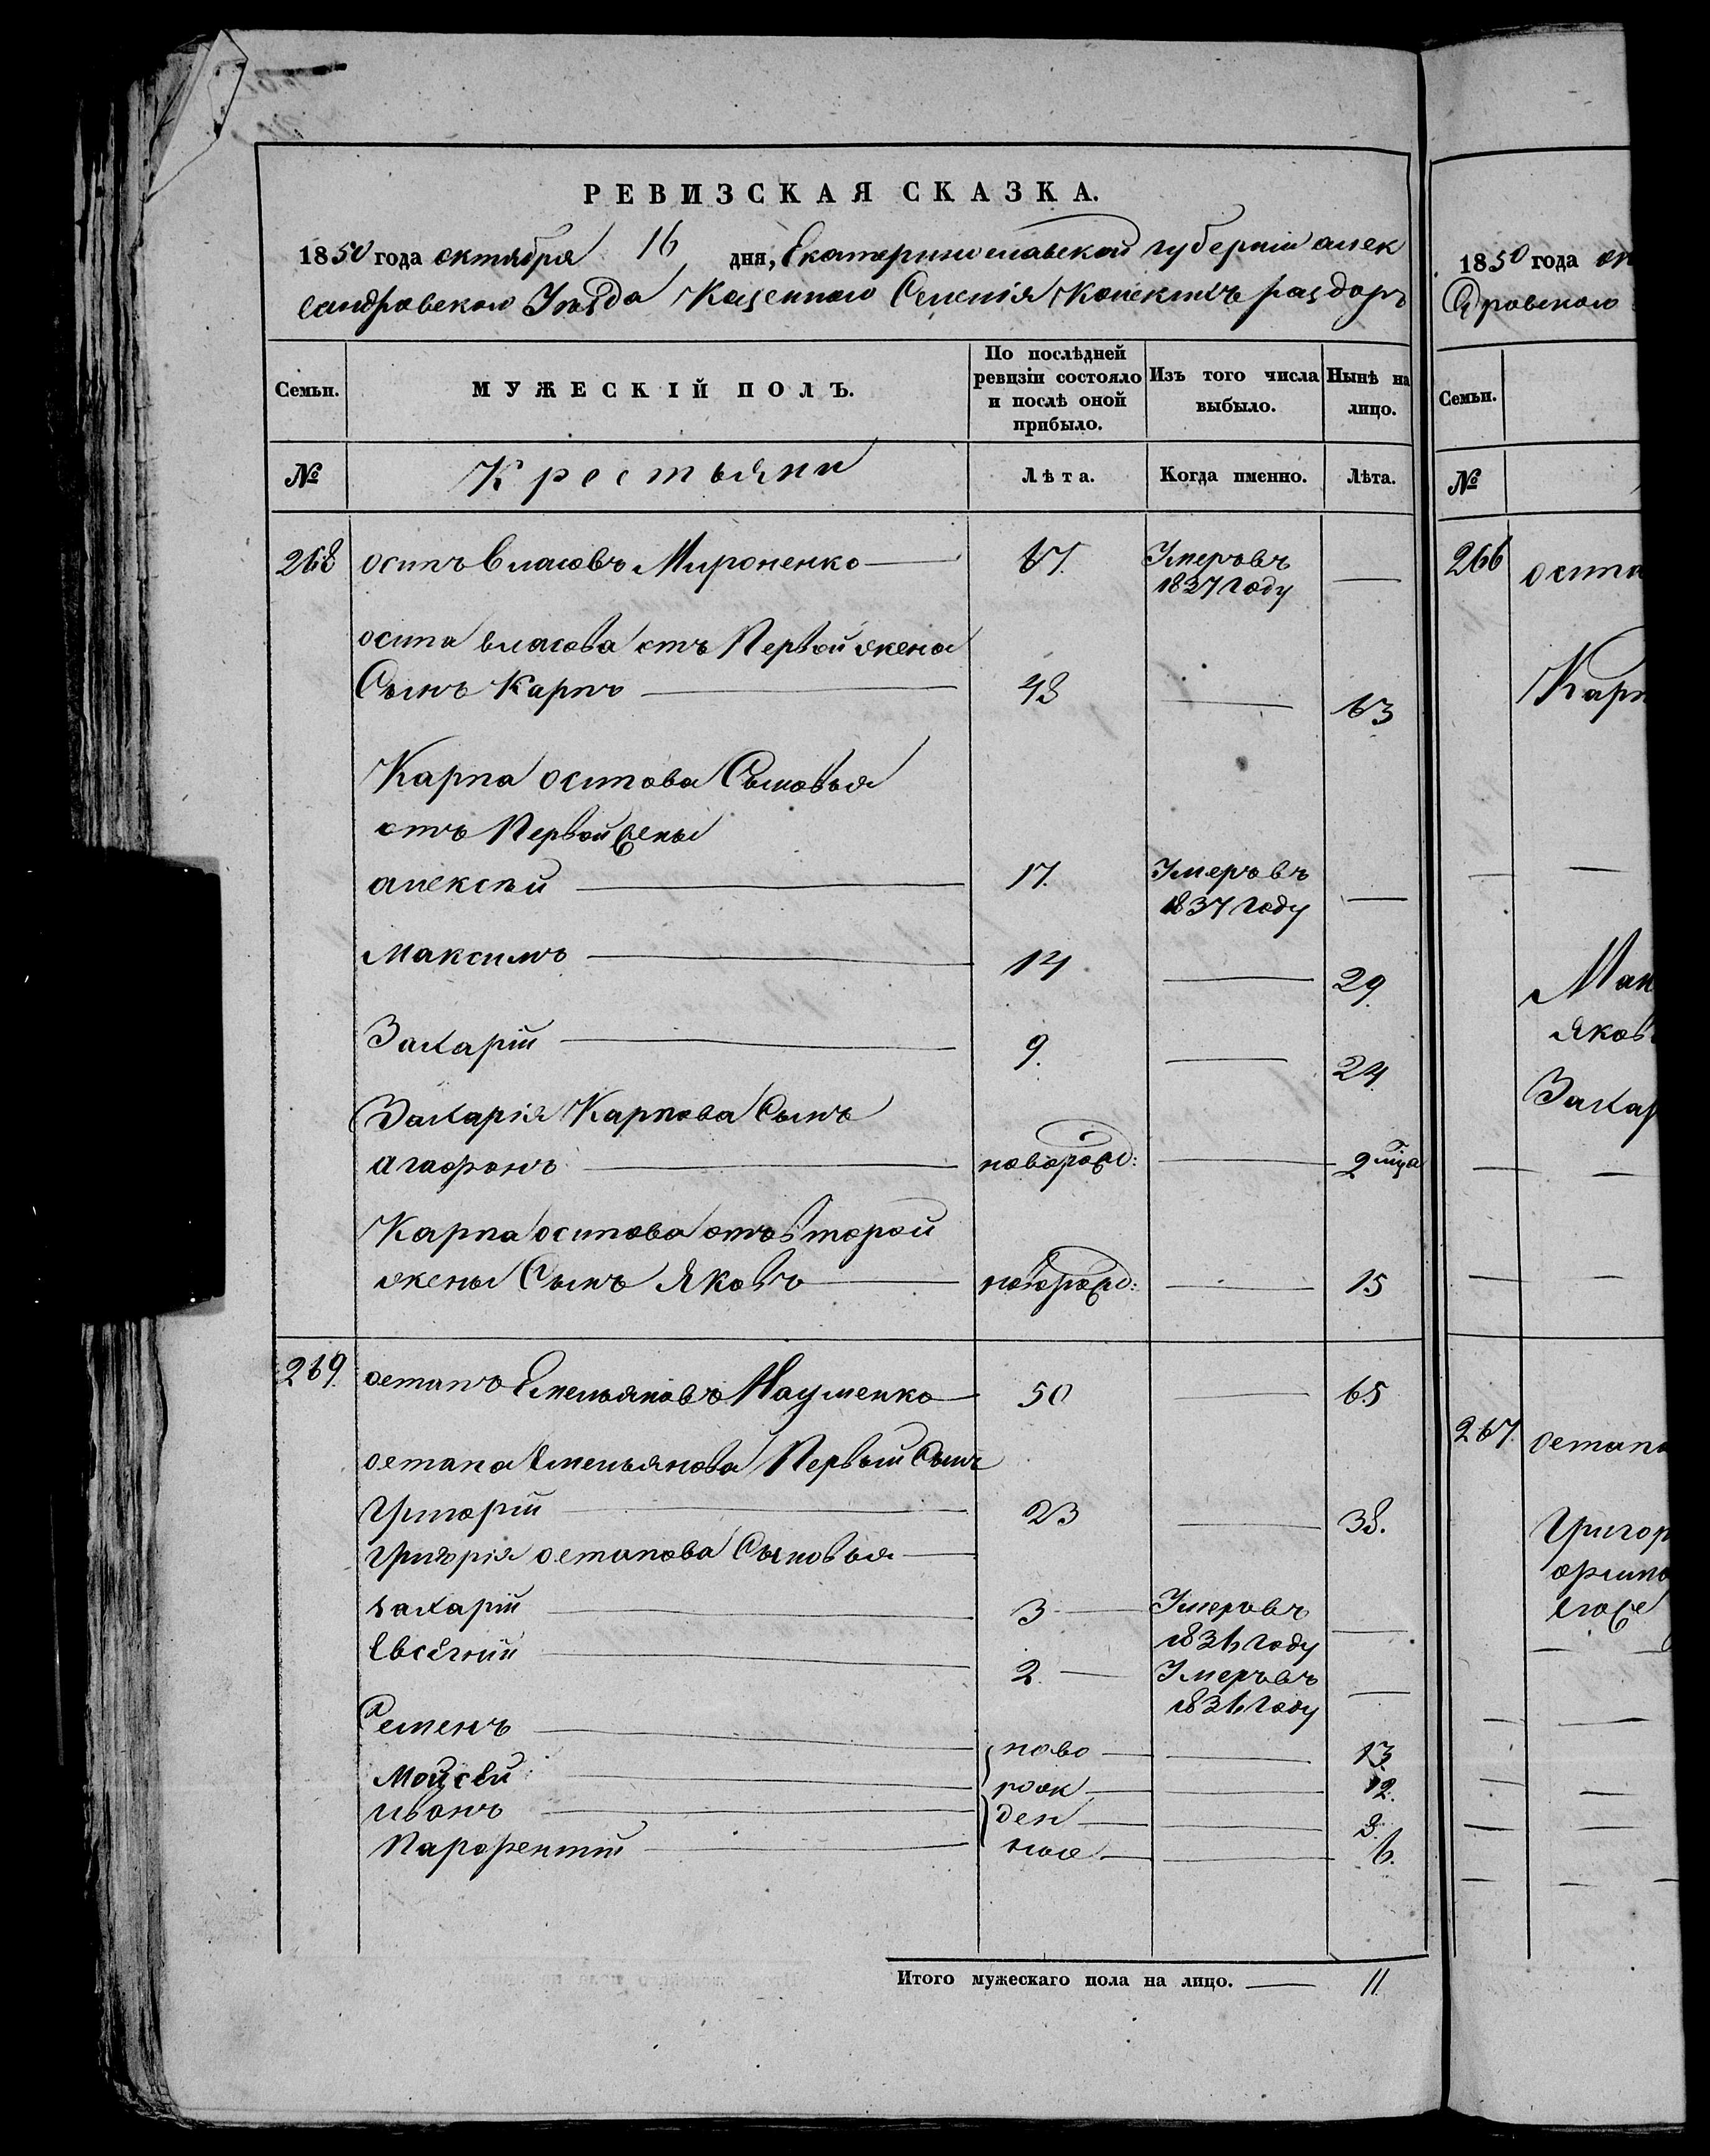 РЕВИЗСКАЯ СКАЗКА.
1850 года октября 16 дня, Екатеринославской губернiи алек
сандровского Уезда Казенного Селенiя Конскихъ раздоръ
Семьи. МУЖЕСКІЙ ПОЛЪ. По послѣдней ревизіи состояло и послѣ оной прибыло. Изъ того числа выбыло. Нынѣ на лицо.
№ Крестьяни Лѣта. Когда именно. Лѣта.
268 осипъ власовъ Мироненко 67. Умеръ въ 1837 году —
осипа власова отъ Первой жены
Сынъ Карпъ 48 — 63
Карпа осипова Сыновья
отъ Первой жены
алексѣй 17. Умеръ въ 1837 году —
Максимъ 14 — 29.
Захарiй 9. — 24.
Захарiя Карпова Сынъ
агафонъ новорожд: — 2 мца
Карпа осипова отъ второй
жены Сынъ Яковъ новорожд: — 15
269. остапъ Емельяновъ Науменко 50 — 65
остапа Емельянова Первый Сынъ
григорiй 23 — 38.
григорiя остапова Сыновья
захарiй 3 — Умеръ въ 1836 году —
Евсегнiй 2. — Умеръ въ 1836 году —
Семенъ ново — 13.
Моусей рож — 12.
иванъ ден — 8.
Парфентiй ные — 6.
Итого мужескаго пола на лицо. — 11
1850 года ок
дровского
Семьи.
№
266 осипа
Карп
Мак
Яков
Захар
267. остапа
Григор